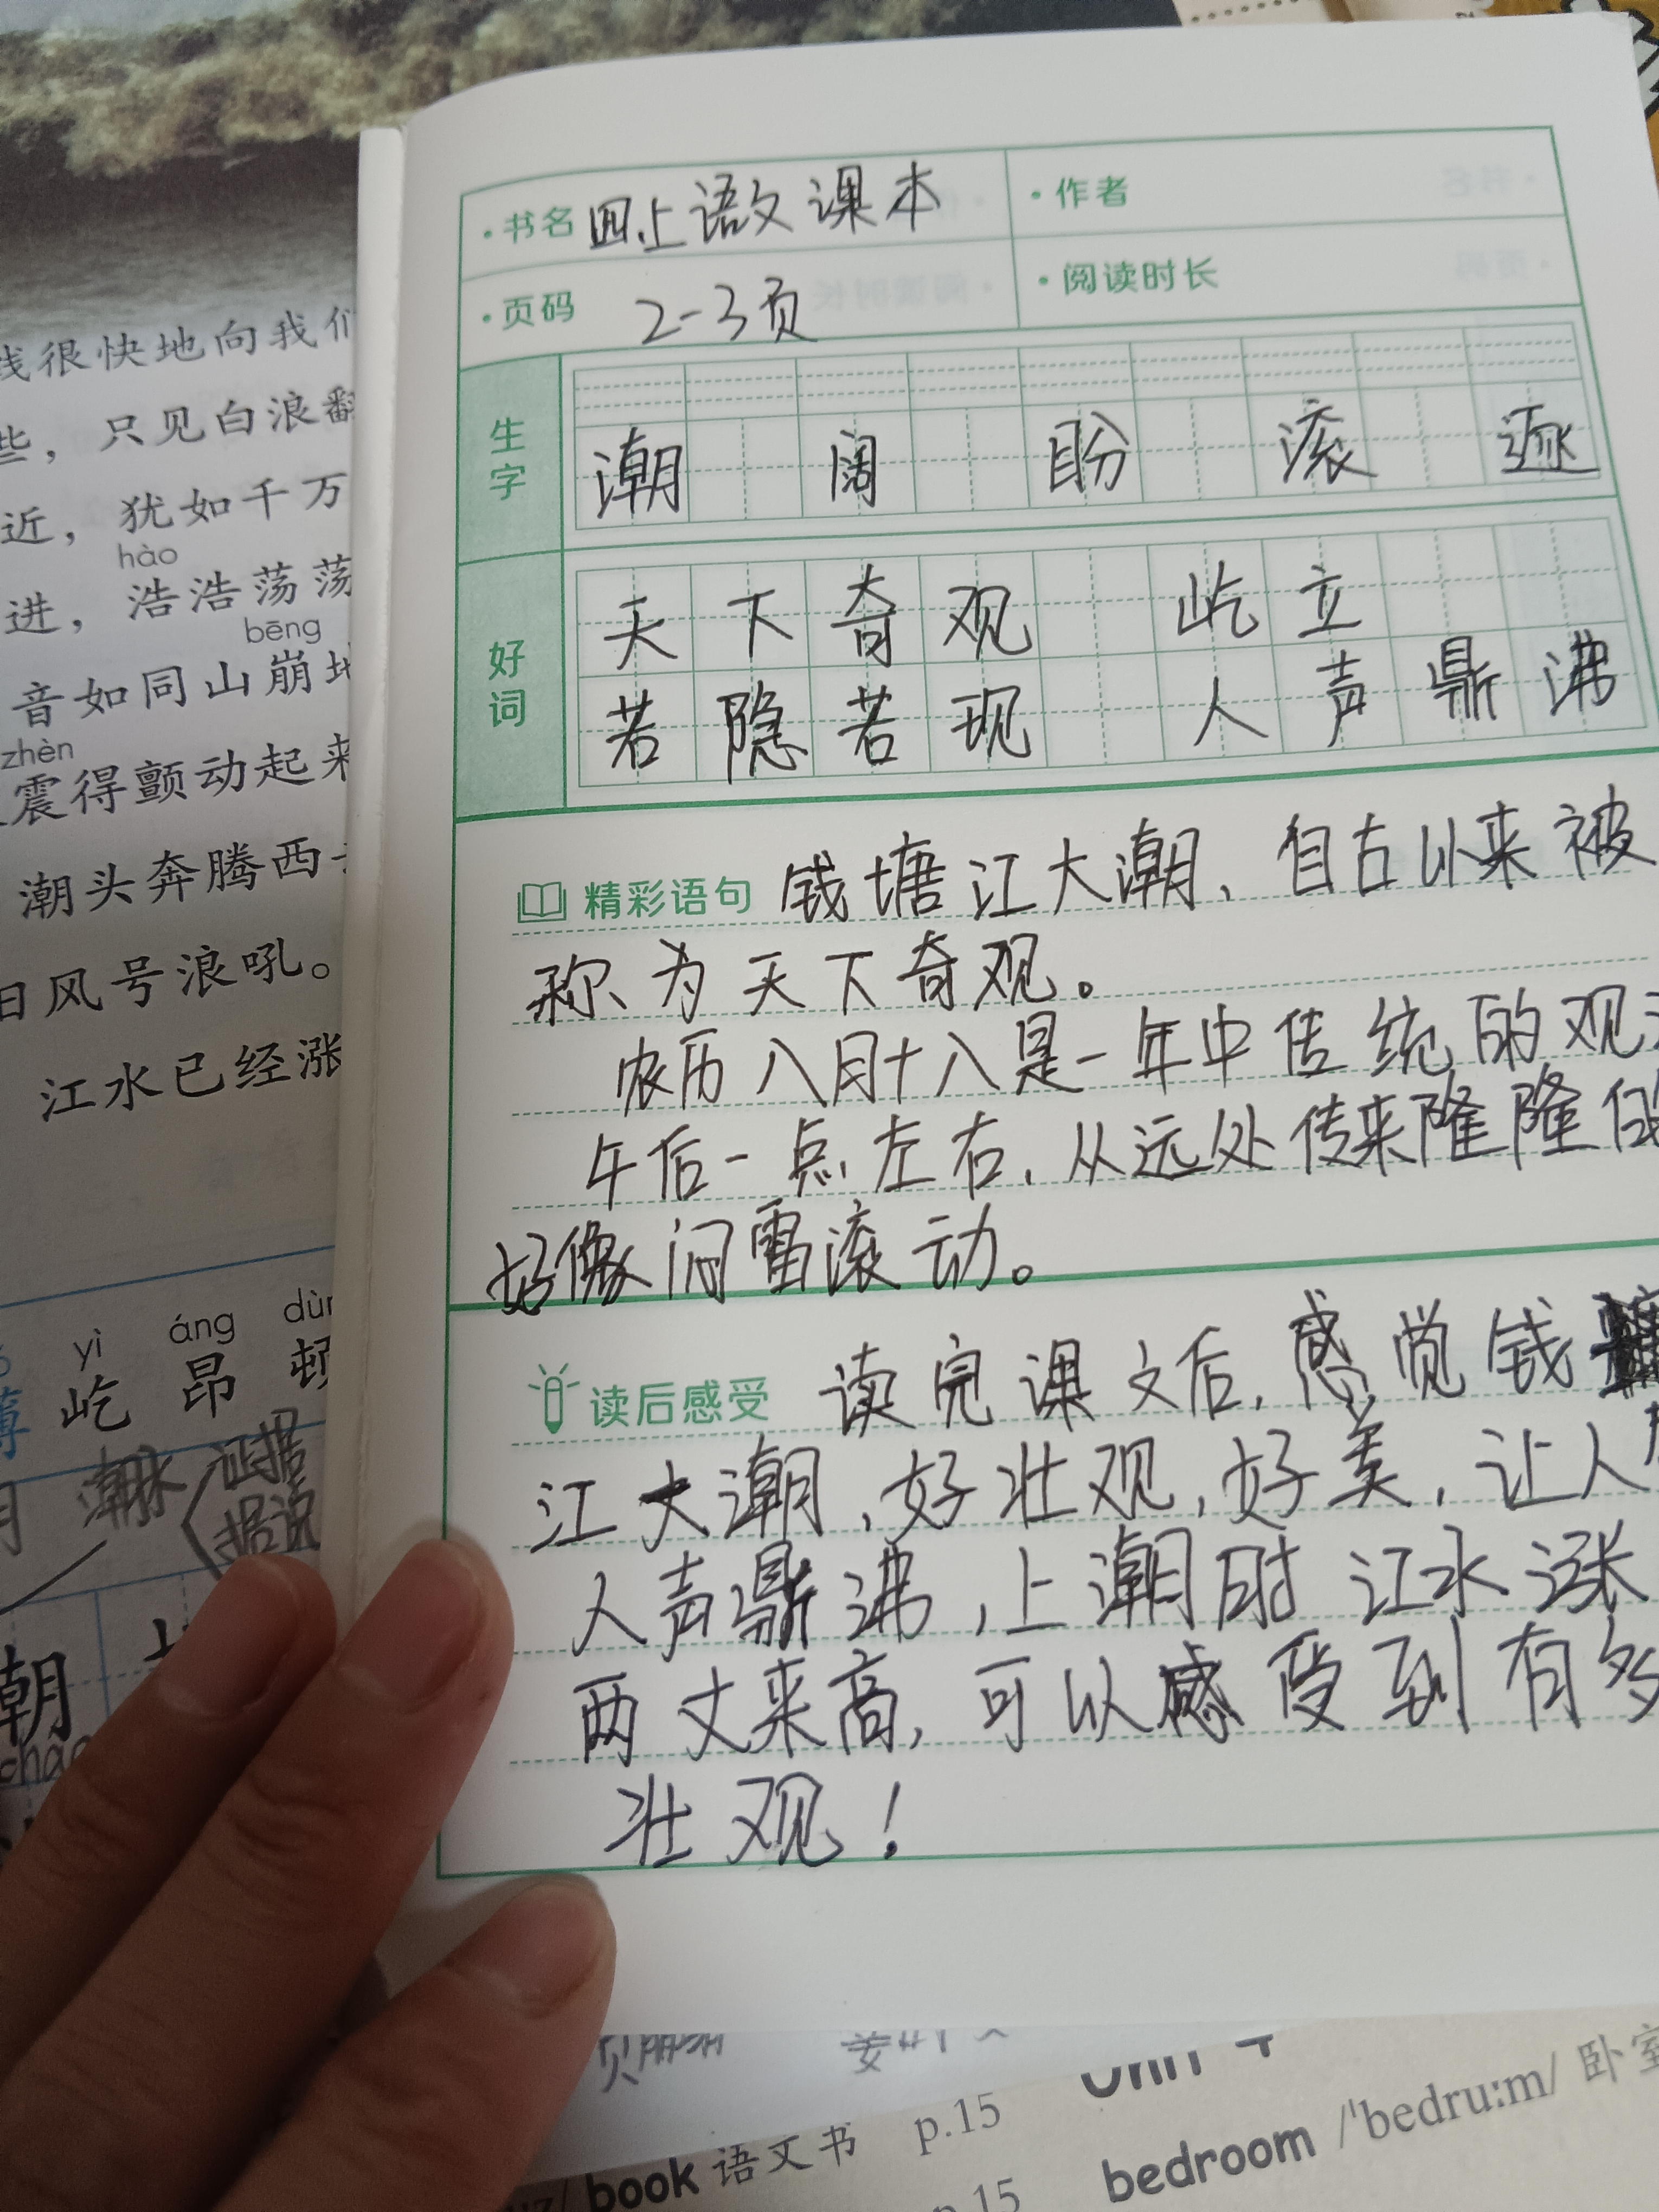 线很快地向我们
些，只见白浪翻
近，犹如千万
hào
进，浩浩荡荡
bēng
音如同山崩地
zhèn
震得颤动起来
潮头奔腾西去
旧风号浪吼。
江水已经涨
yì áng dùn
薄 屹 昂 顿
潮水 证据
据说
朝
cháo
·书名 四上语文课本 ·作者
·页码 2-3页 ·阅读时长
生字 潮 阔 盼 滚 逐
好词 天下奇观 屹立
若隐若现 人声鼎沸
精彩语句 钱塘江大潮、自古以来被
称为天下奇观。
农历八月十八是一年中传统的观
午后一点左右，从远处传来隆隆的
好像闷雷滚动。
读后感受 读完课文后，感觉钱
江大潮，好壮观，好美，让人
人声鼎沸，上潮时江水涨
两丈来高，可以感受到有多
壮观！
p.15
book 语文书
bedroom /ˈbedruːm/ 卧室
p.15